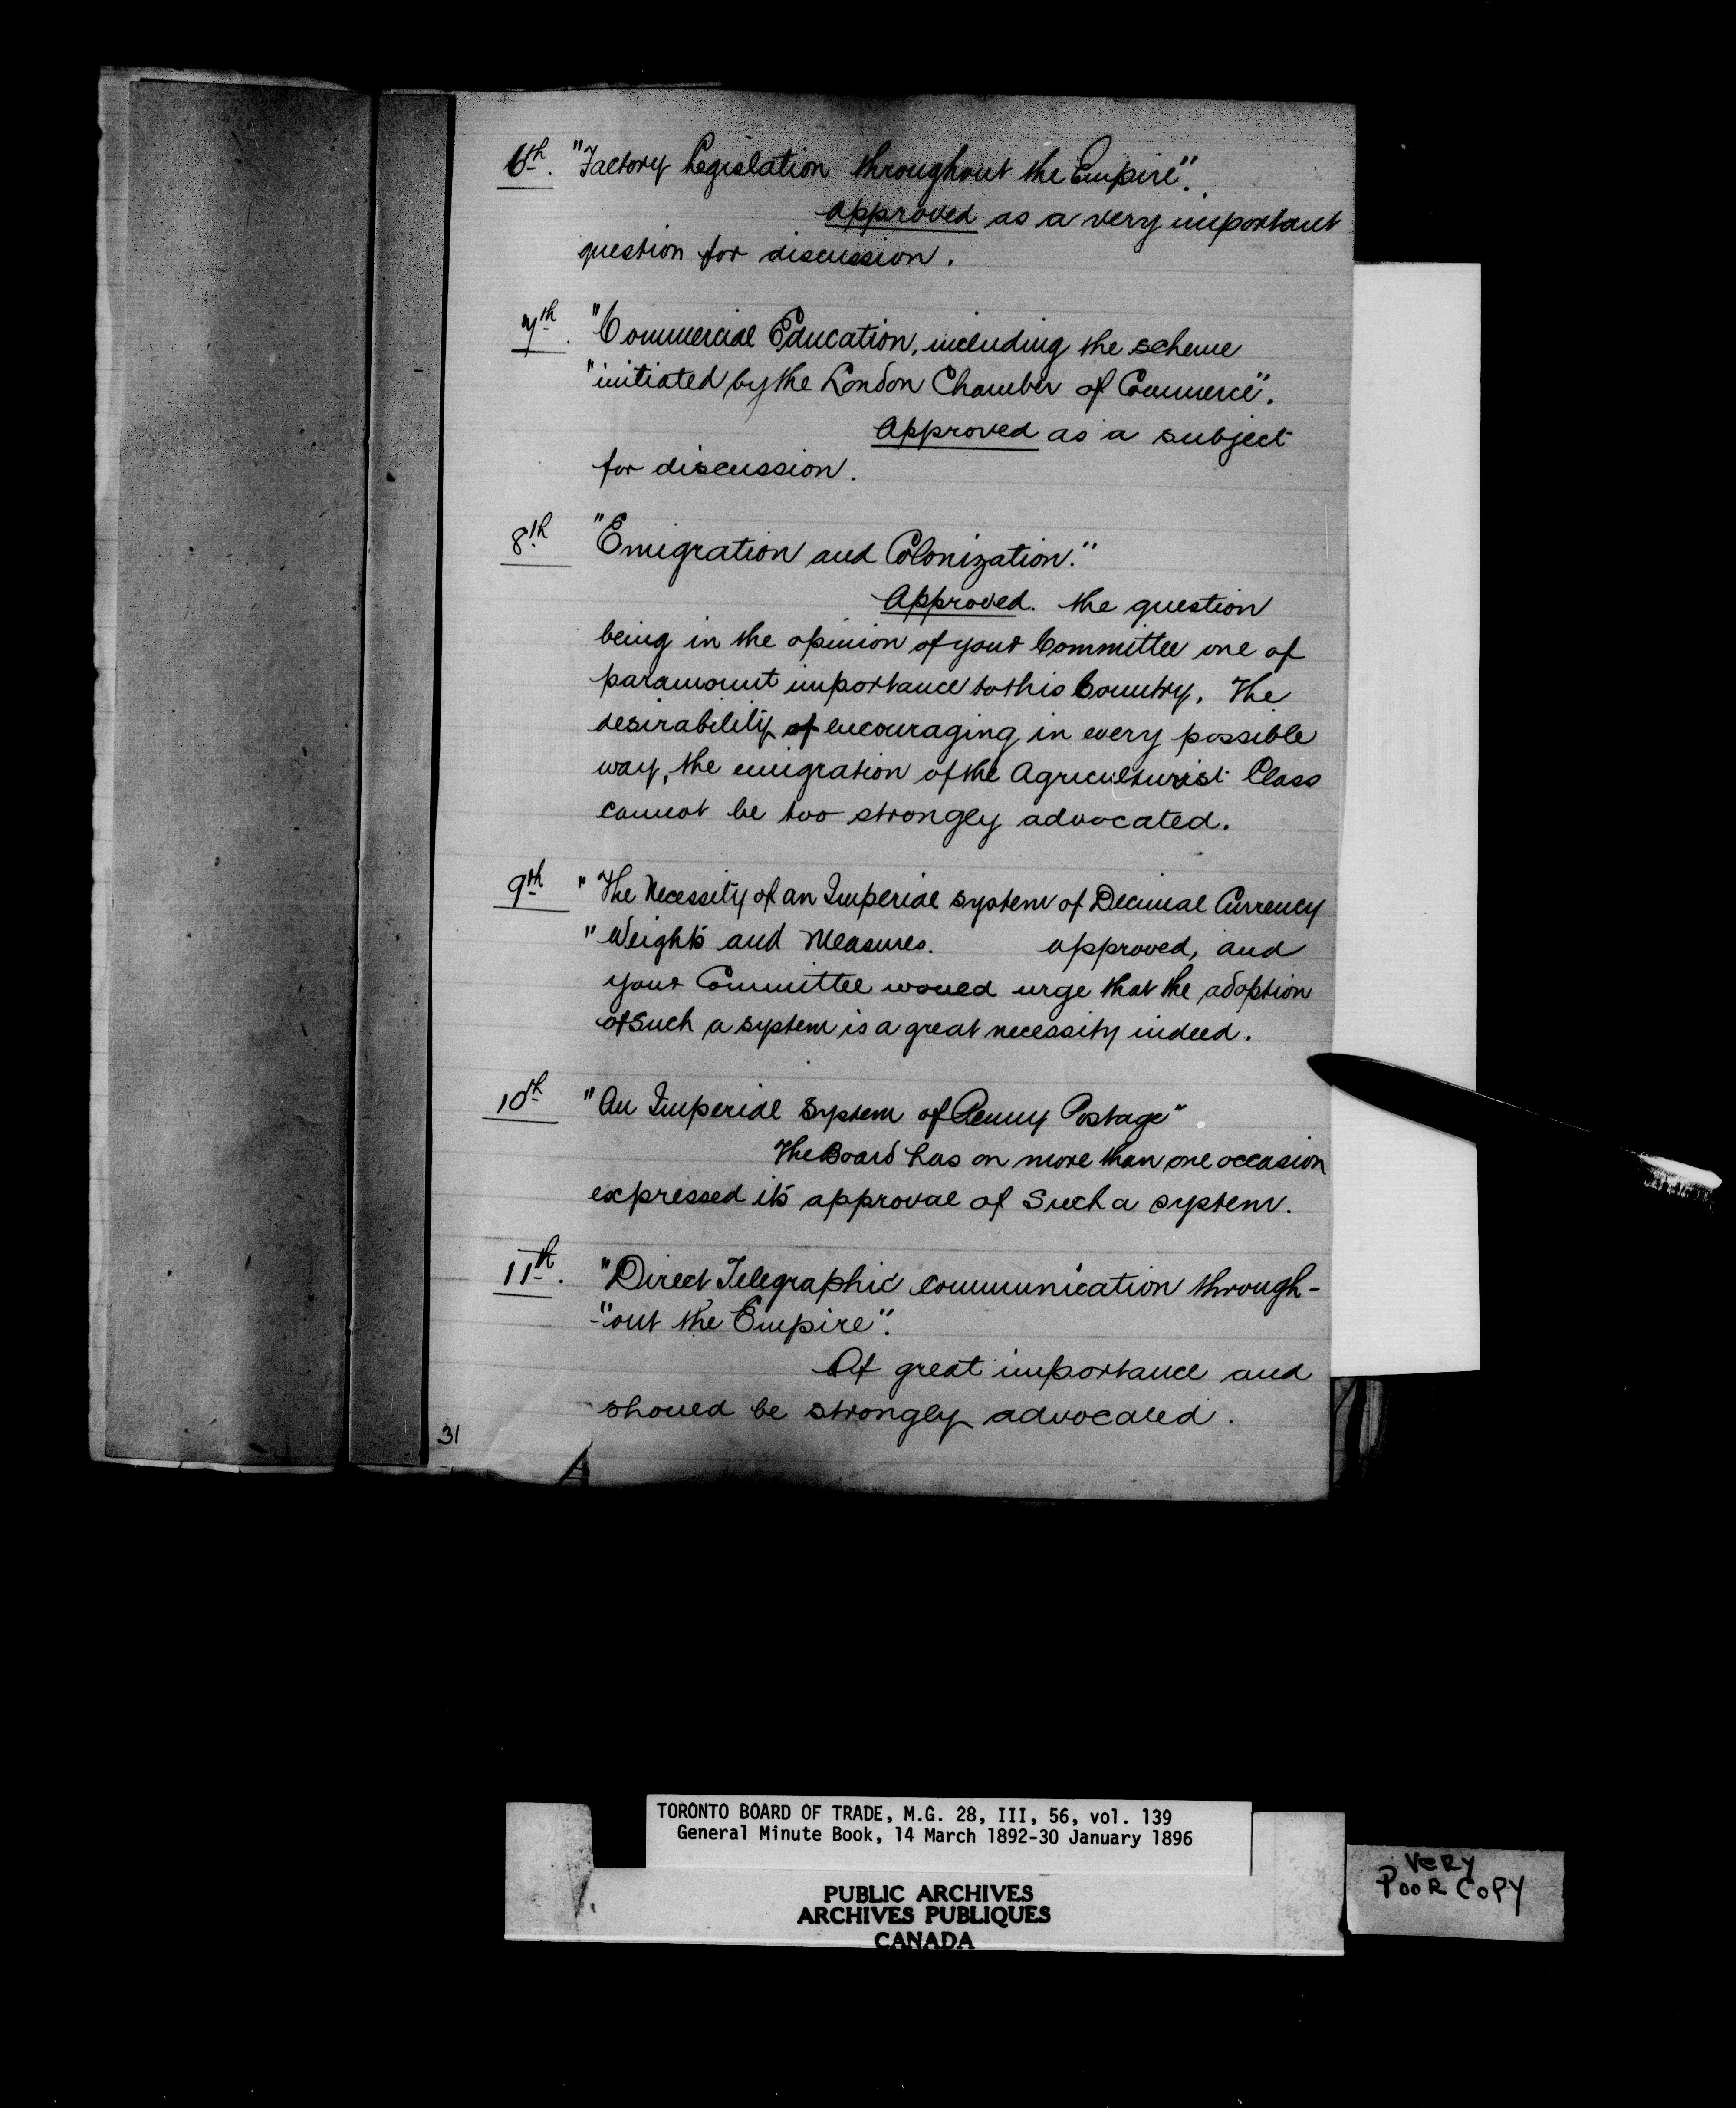 6th. "Factory Legislation throughout the Empire".
Approved as a very important
question for discussion.
7th. "Commercial Education, including the scheme
"initiated by the London Chamber of Commerce".
Approved as a subject
for discussion.
8th "Emigration and Colonization."
Approved. the question
being in the opinion of your Committee one of
paramount importance to this Country. The
desirability of encouraging in every possible
way, the emigration of the Agriculturist Class
cannot be too strongly advocated.
9th "The Necessity of an Imperial system of Decimal Currency
"Weights and Measures. approved, and
your Committee would urge that the adoption
of such a system is a great necessity indeed.
10th "An Imperial System of Penny Postage"
The Board has on more than one occasion
expressed its approval of Such a system.
11th. "Direct Telegraphic communication through-
-"out the Empire".
Of great importance and
should be strongly advocated.
31
TORONTO BOARD OF TRADE, M.G. 28, III, 56, vol. 139
General Minute Book, 14 March 1892-30 January 1896
PUBLIC ARCHIVES
ARCHIVES PUBLIQUES
CANADA
VeRY
PooR CoPY